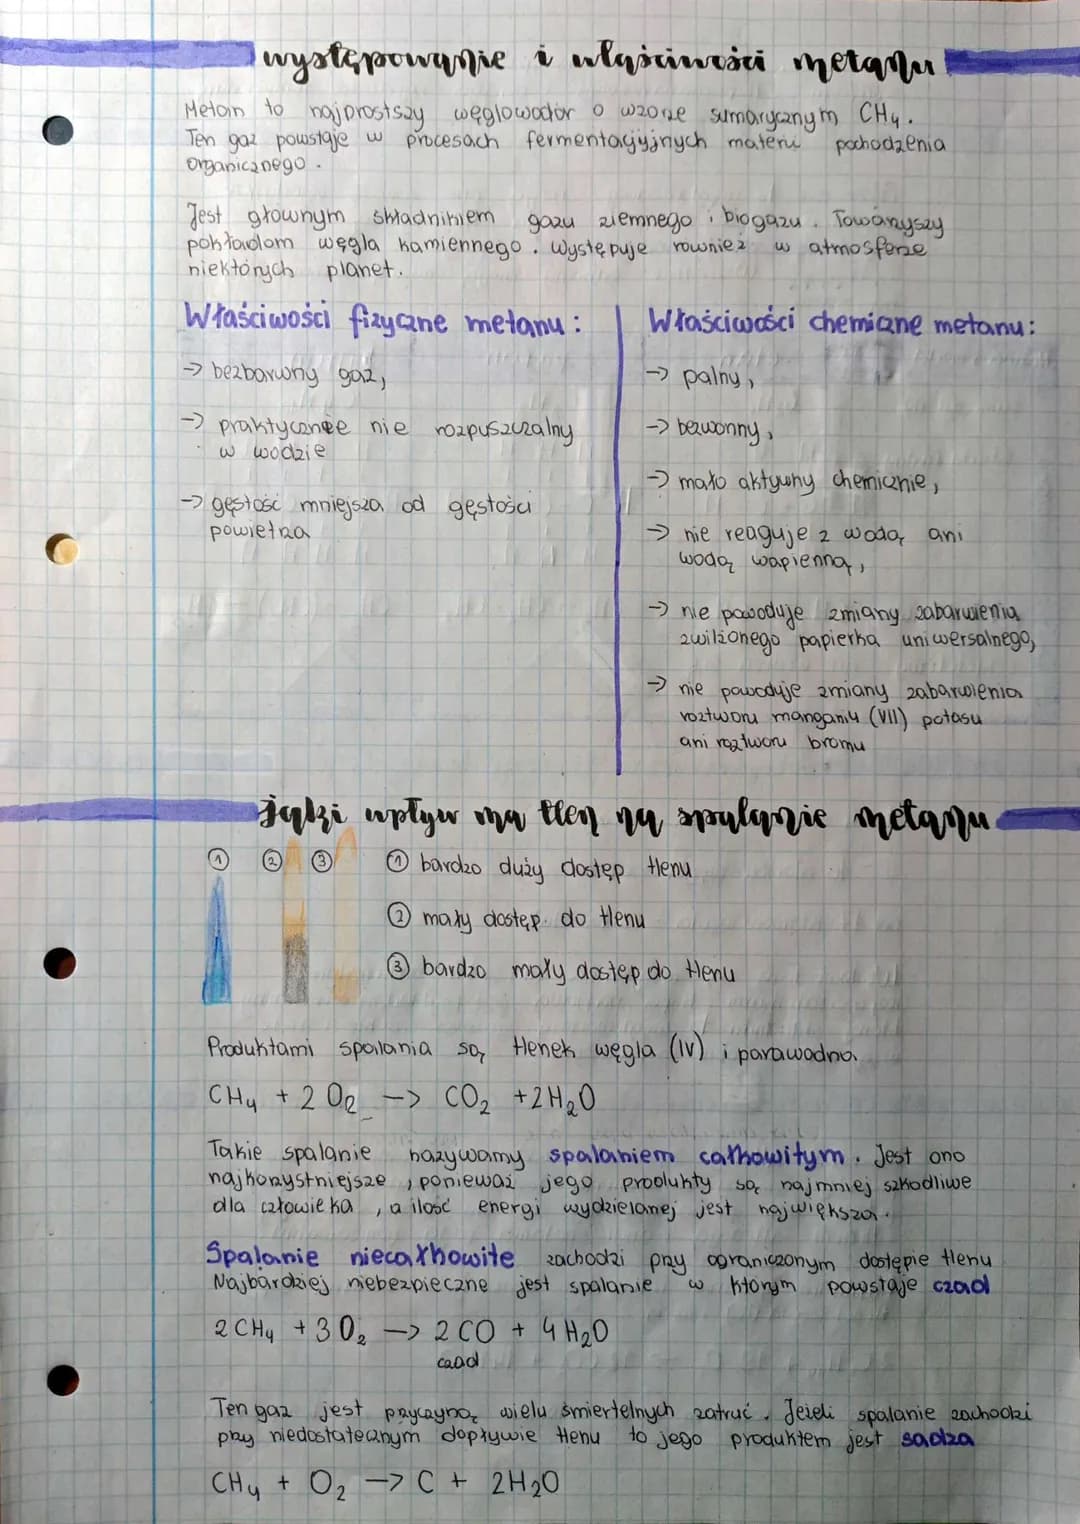 występowanie i właściwości metanu
Metan to najprostszy węglowodór o wzorze sumarycznym CH₄.
Ten gaz powstaje w procesach fermentacyjnych materii pochodzenia
organicznego.
Jest głownym składnikiem gazu ziemnego i biogazu. Towarzyszy
pokładom węgla kamiennego. Występuje rownież w atmosferze
niektórych planet.
Właściwości fizyczne metanu:
→ bezbarwny gaz,
→ praktycznie nie rozpuszczalny
w wodzie
→ gęstość mniejsza od gęstości
powietrza
Właściwości chemiczne metanu:
→ palny,
→ bezwonny,
→ mało aktywny chemicznie,
→ nie reaguje z wodą ani
wodą wapienną,
→ nie powoduje zmiany zabarwienia
zwilżonego papierka uniwersalnego,
→ nie powoduje zmiany zabarwienia
roztworu manganiu (VII) potasu
ani roztworu bromu
jaki wpływ ma tlen na spalanie metanu
① ② ③ ① bardzo duży dostęp tlenu
② mały dostęp do tlenu
③ bardzo mały dostęp do tlenu
Produktami spalania są tlenek węgla (IV) i para wodna.
CH₄ + 2 O₂ → CO₂ + 2H₂O
Takie spalanie nazywamy spalaniem całkowitym. Jest ono
najkorzystniejsze, ponieważ jego produkty są najmniej szkodliwe
dla człowieka, a ilość energi wydzielanej jest największa.
Spalanie niecałkowite zachodzi przy ograniczonym dostępie tlenu
Najbardziej niebezpieczne jest spalanie w którym powstaje czad
2 CH₄ + 3 O₂ → 2 CO + 4 H₂O
czad
Ten gaz jest przyczyną wielu śmiertelnych zatruć. Jeżeli spalanie zachodzi
przy niedostatecznym dopływie tlenu to jego produktem jest sadza
CH₄ + O₂ → C + 2H₂O